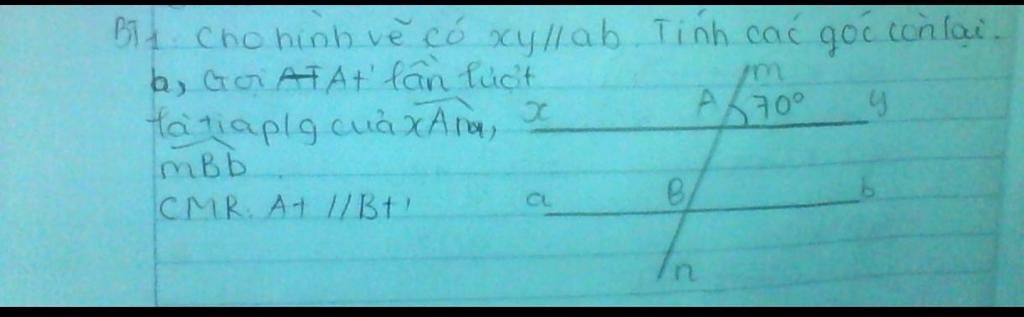 BT1. Cho hình vẽ có xy//ab. Tính các góc còn lại.
b, Gọi At' lần lượt
là tia p/g của xAn,
mBb
CMR: At //Bt'
x A m 70° y
a B b
n